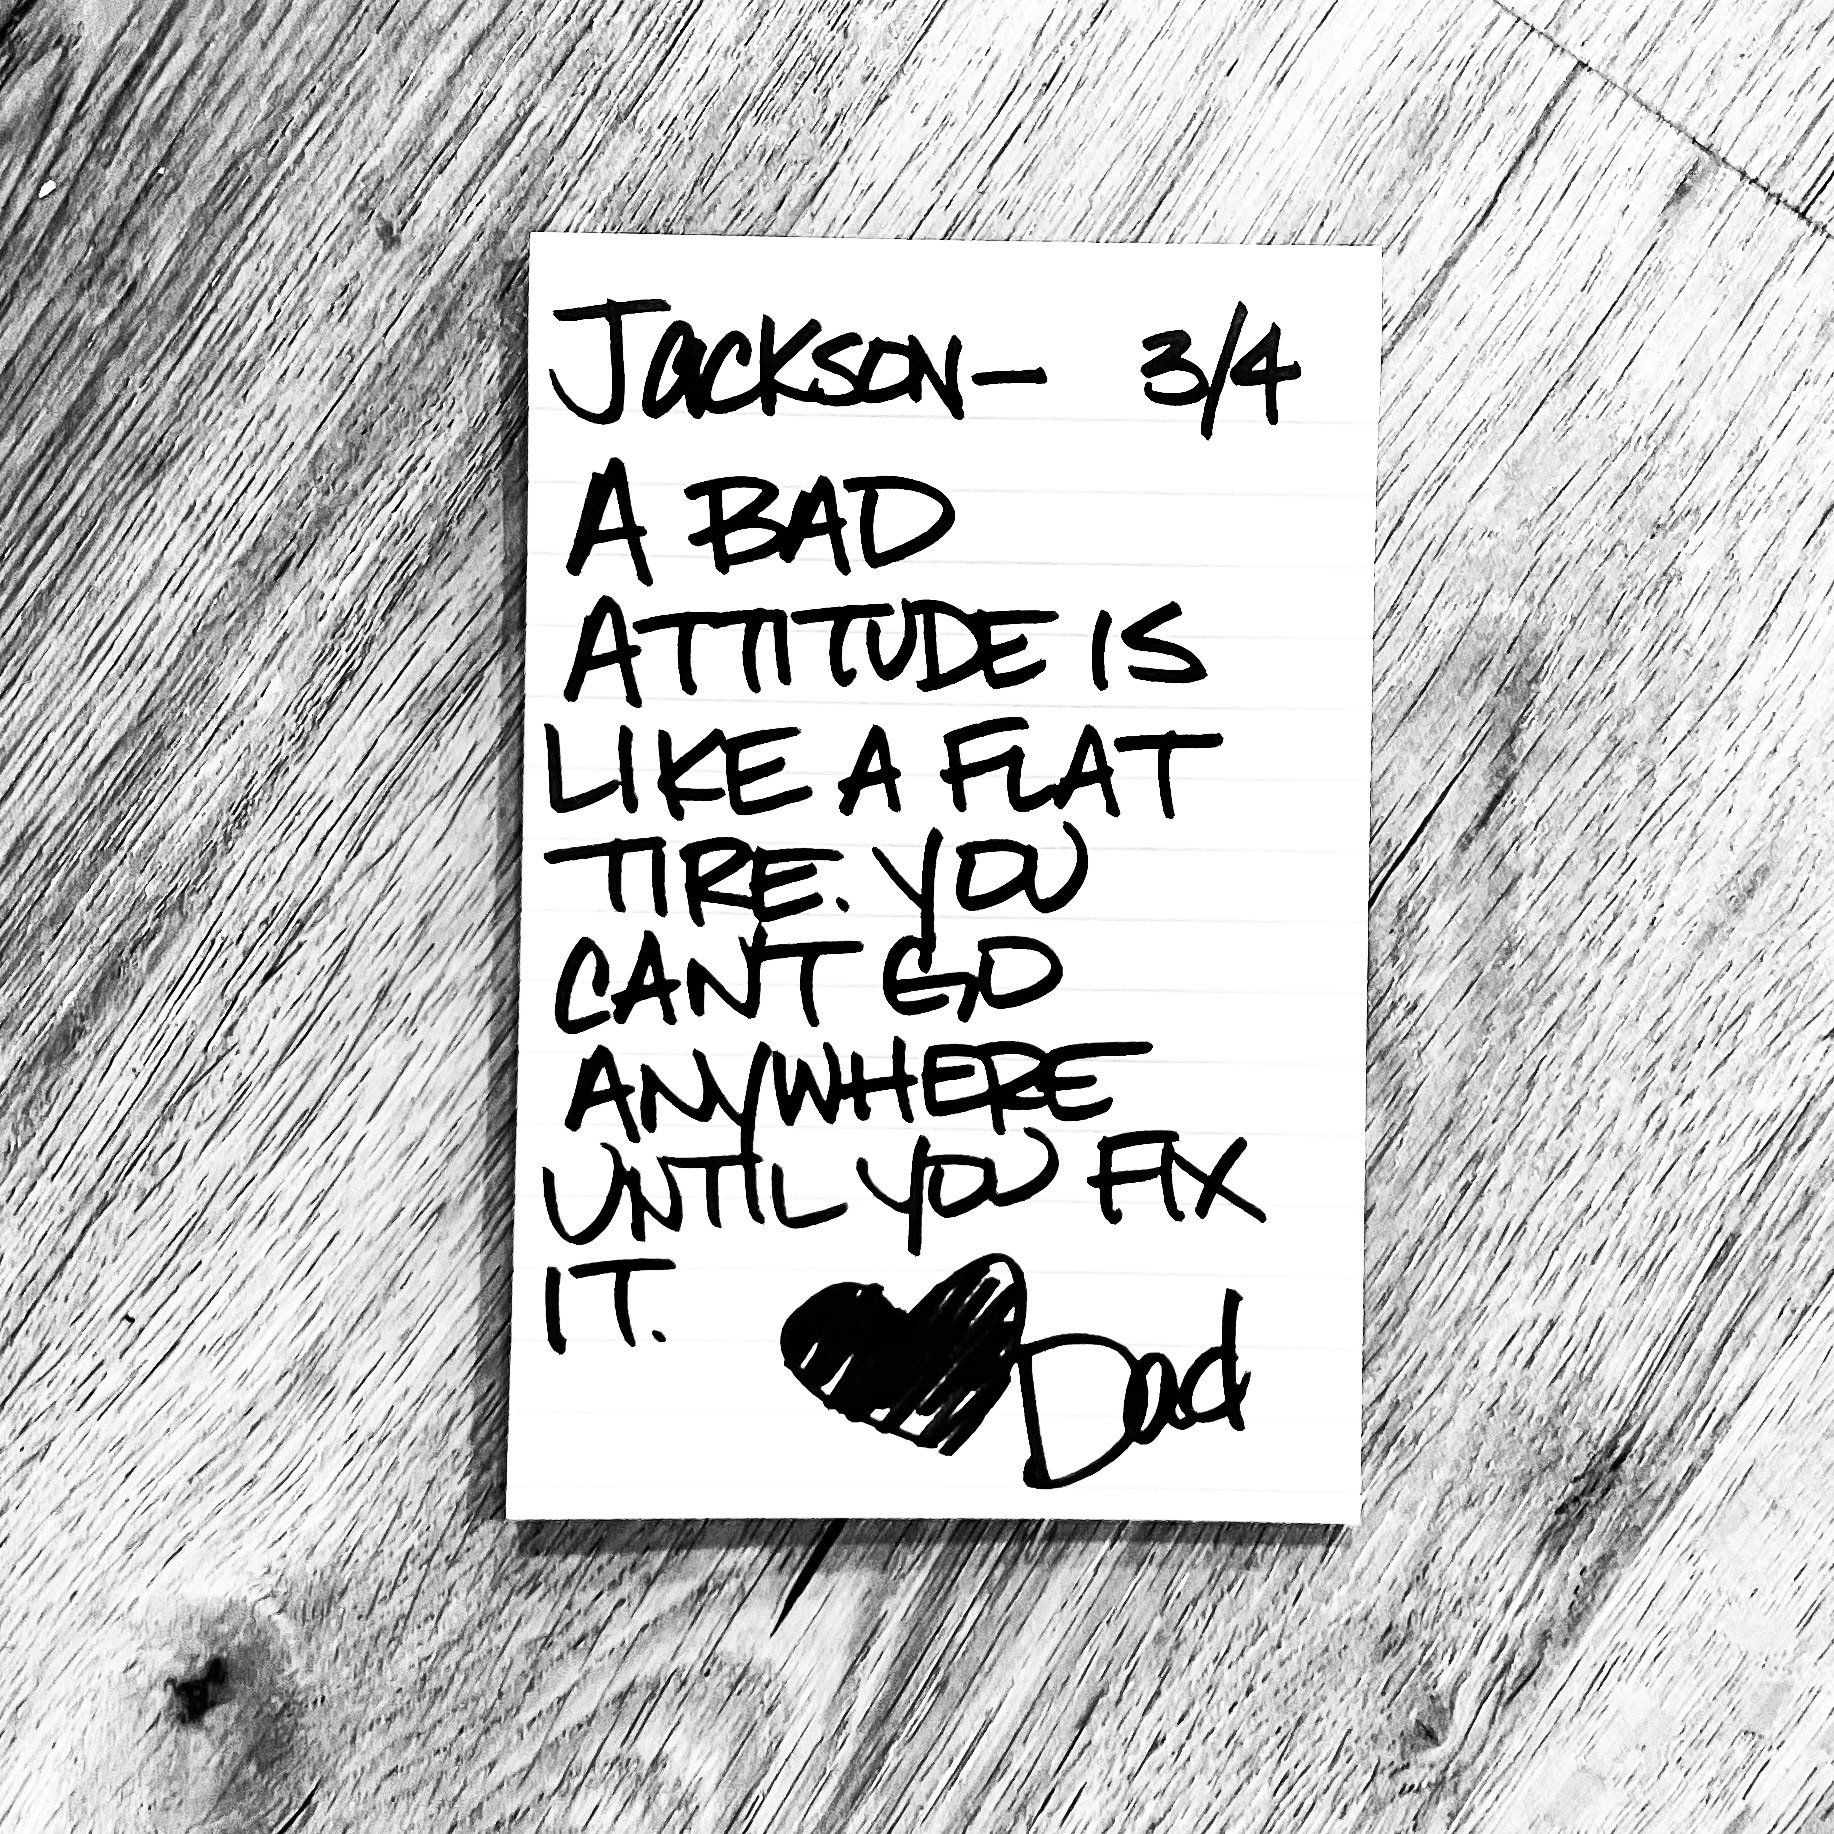 Jackson— 3/4
A BAD
ATTITUDE IS
LIKE A FLAT
TIRE. YOU
CAN'T GO
ANYWHERE
UNTIL YOU FIX
IT.
Dad